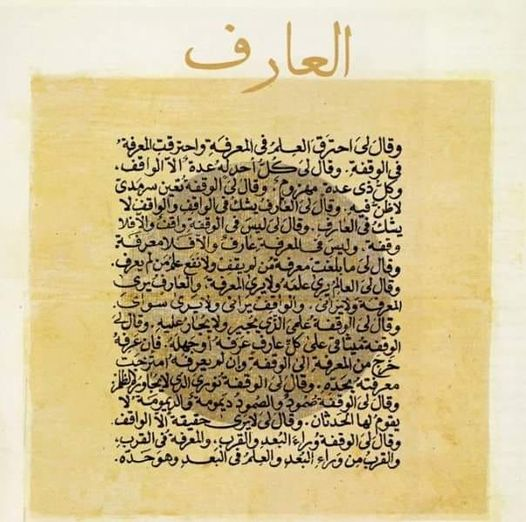 العارف
وقال لى احترق العلم فى المعرفة واحترقت المعرفة
فى الوقفة. وقال لى كل أحد له عدة إلا الواقف،
وكل ذى عدة مهزوم. وقال لى الوقفة تعين سرمدى
لا ظن فيه. وقال لى العارف يشك فى الواقف والواقف لا
يشك فى العارف. وقال لى ليس فى الوقفة واقف وإلا فلا
وقفة. وليس فى المعرفة عارف وإلا فلا معرفة
وقال لى ما بلغت معرفة من لم يقف ولا نفع علم من لم يعرف.
وقال لى العالم يرى علمه ولا يرى المعرفة. والعارف يرى
المعرفة ولا يرانى. والواقف يرانى ولا يرى سواى
وقال لى الوقفة علمى الذى يجير ولا يجار عليه. وقال لى
الوقفة ميثاقى على كل عارف عرفه أو جهله. فإن عرفه
خرج من المعرفة إلى الوقفة وإن لم يعرفه امتزجت
معرفته بحده. وقال لى الوقفة نورى الذى لا يجاوره الظلم
وقال لى الوقفة صمود والصمود ديمومة والديمومة لا
يقوم لها الحدثان. وقال لى لا يرى حقيقة إلا الواقف.
وقال لى الوقفة وراء البعد والقرب، والمعرفة فى القرب،
والقرب من وراء البعد والعلم فى البعد وهو حده.